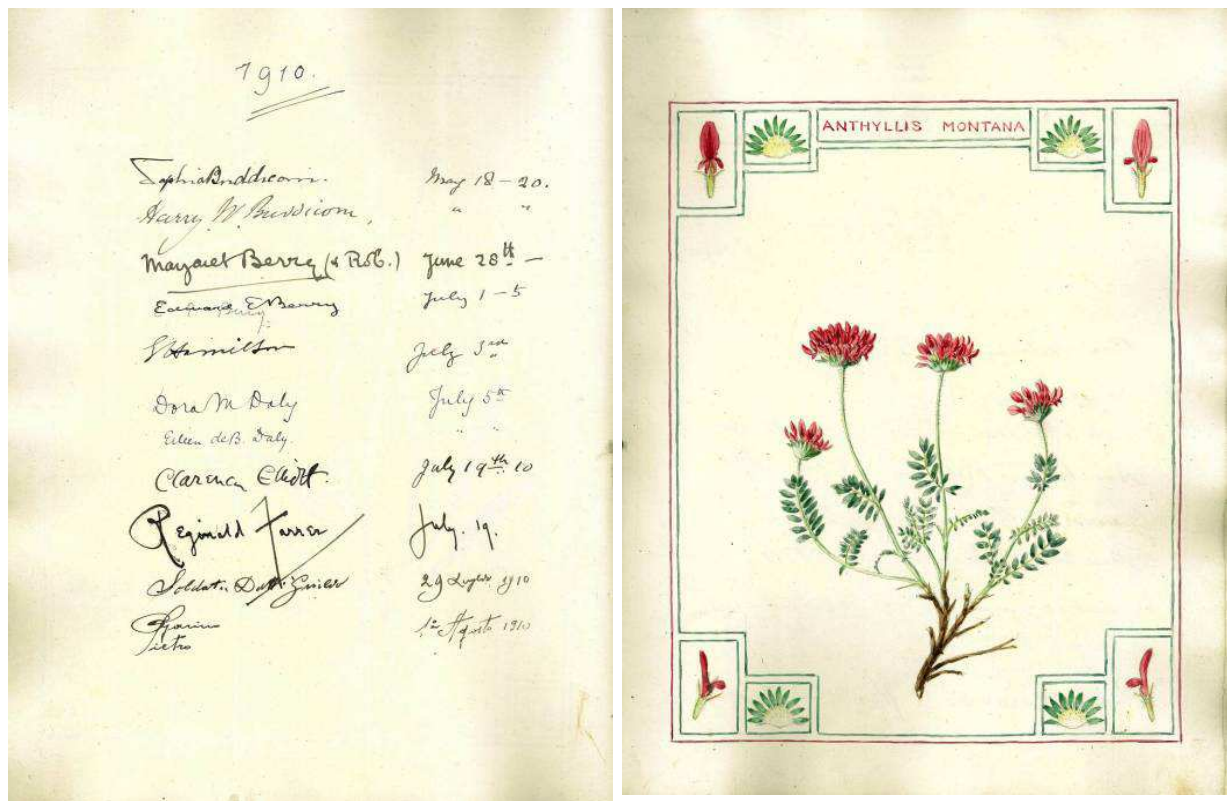 1910.
Sophia Buddicom. May 18 – 20.
Harry W. Buddicom, " "
Margaret Berry (& Rob.) June 28th –
Edward E Berry July 1 – 5
Hamilton July 3rd
Dora M Daly July 5th
Eileen de B. Daly. " "
Clarence Elliott. July 19th 10
Reginald Farrer July. 19.
29 Luglio 1910
Pietro Agosto 1910
ANTHYLLIS MONTANA